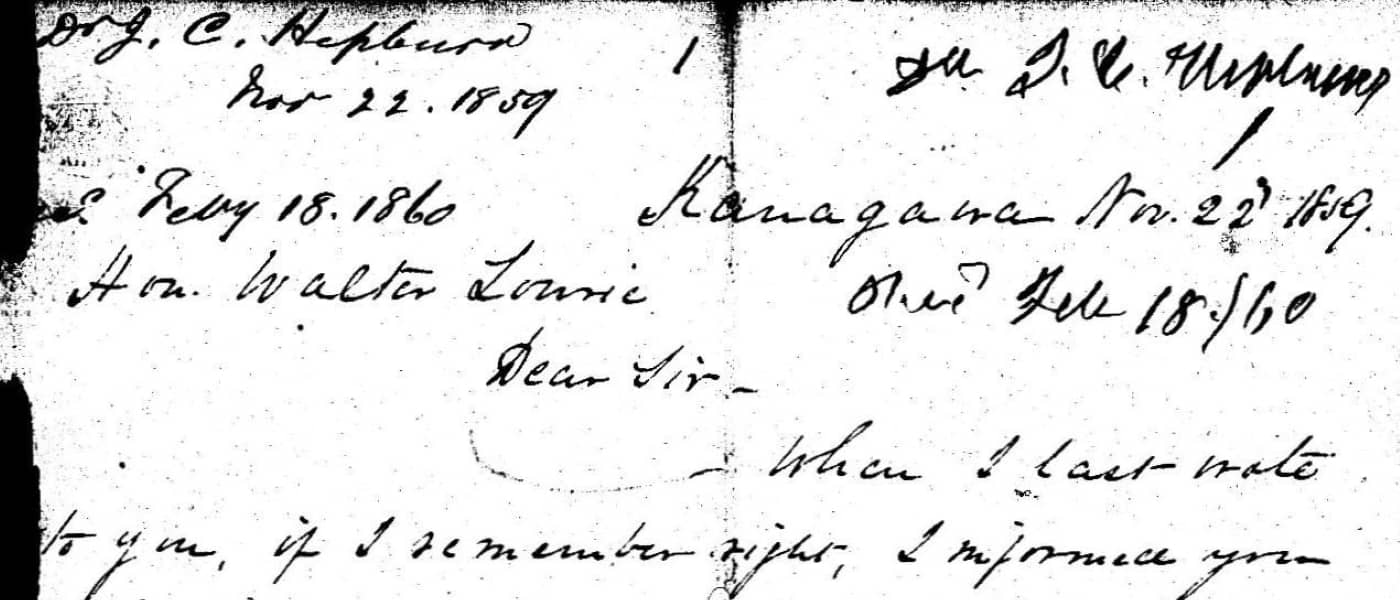 Dr J. C. Hepburn
Nov 22. 1859
1
Dr. J. C. Hepburn
1
Feby 18. 1860
Kanagawa Nov. 22d 1859.
Hon. Walter Lowrie
Recd Feb 18./60
Dear Sir -
- When I last wrote
to you, if I remember right, I informed you